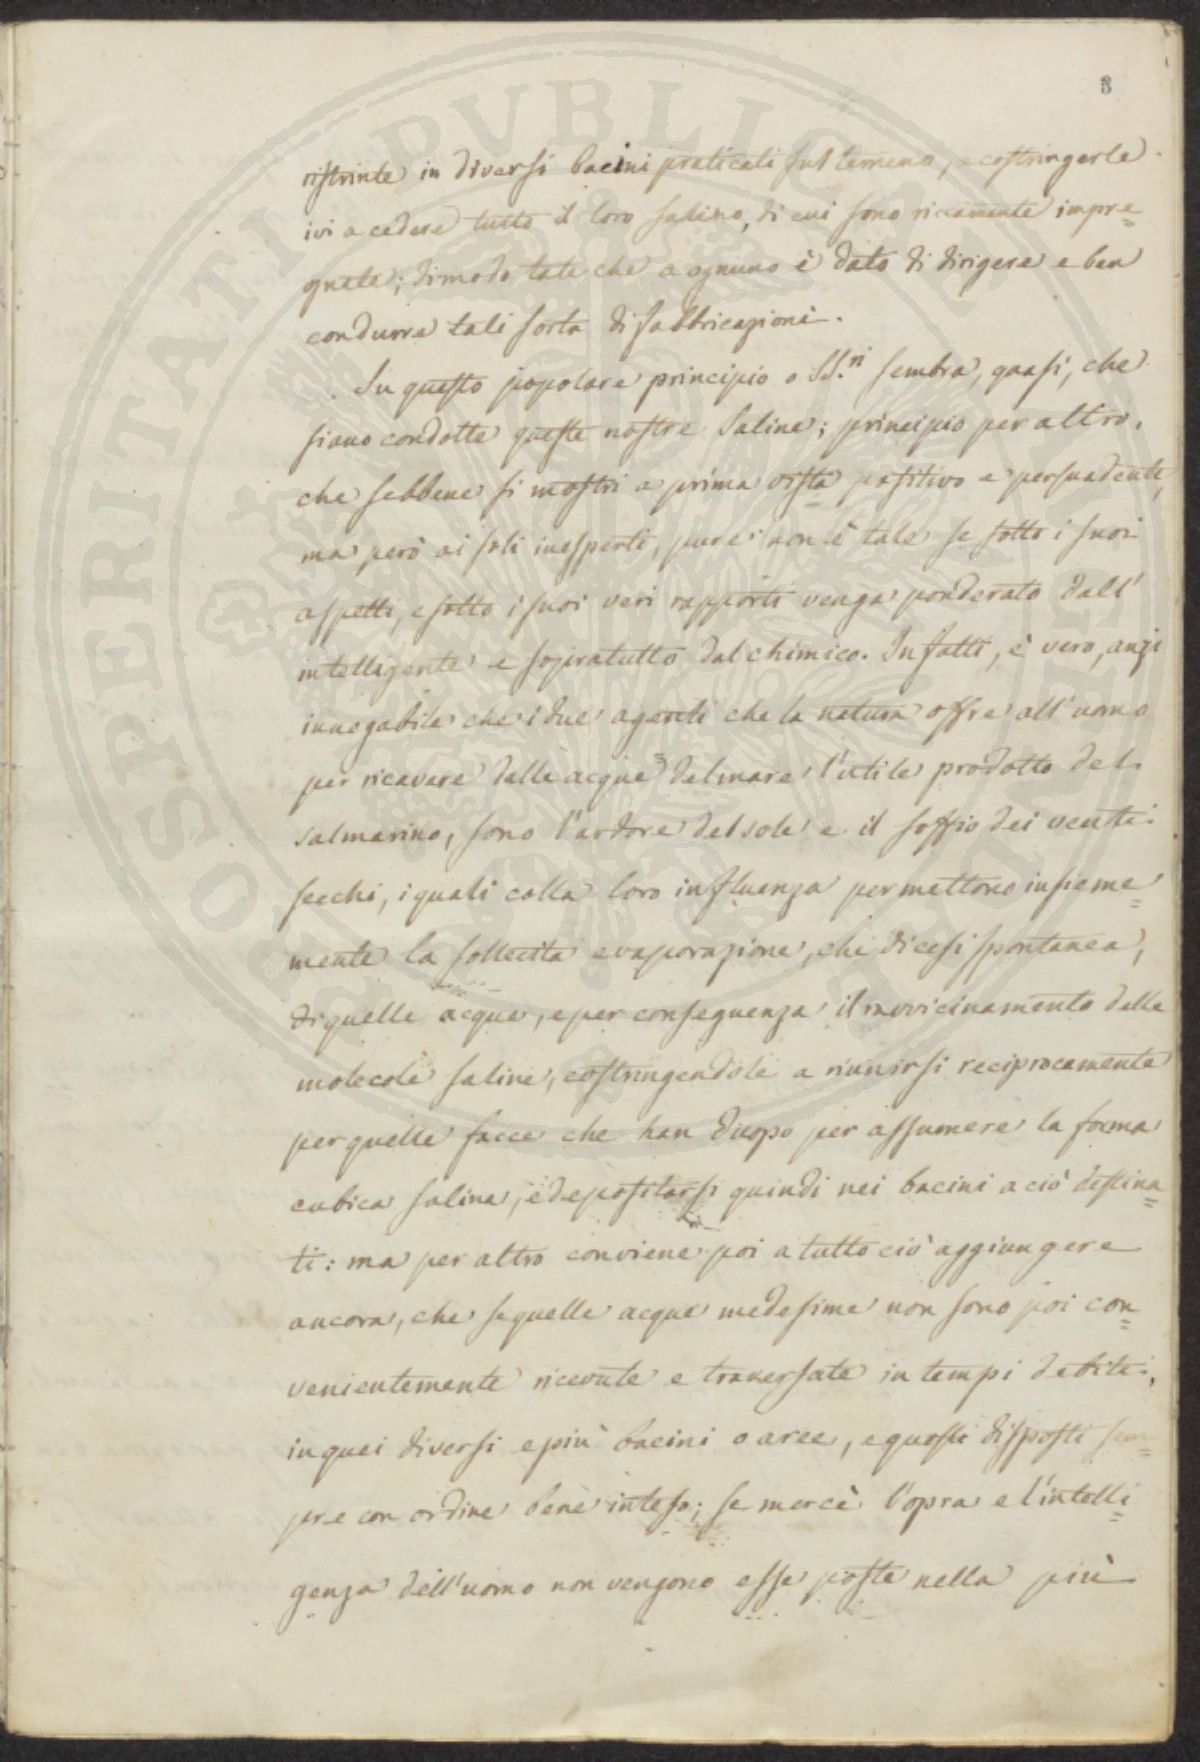 5
ristrinte in diversi bacini praticati sul terreno, e costringerle
ivi a cedere tutto il loro salino, di cui sono riccamente impre=
gnate; dimodo tale che a ognuno è dato di dirigere e ben
condurre tali sorta di fabbricazioni.
Su questo popolare principio o SS.ri sembra, quasi, che
siano condotte queste nostre Saline; principio per altro,
che sebbene si mostri a prima vista positivo e persuadente,
ma però ai soli inesperti, pure non è tale se sotto i suoi
aspetti, e sotto i suoi veri rapporti venga ponderato dall'
intelligente e sopratutto dal chimico. Infatti, è vero, anzi
innegabile che i due agenti che la natura offre all'uomo
per ricavare dalle acque del mare l'utile prodotto del
sal marino, sono l'ardore del sole e il soffio dei venti
secchi, i quali colla loro influenza permettono insieme=
mente la sollecita evaporazione, che dicesi spontanea,
di quelle acque, e per conseguenza il ravvicinamento delle
molecole saline, costringendole a riunirsi reciprocamente
per quelle facce che han duopo per assumere la forma
cubica salina, e depositarsi quindi nei bacini a ciò destina=
ti: ma per altro conviene poi a tutto ciò aggiungere
ancora, che se quelle acque medesime non sono poi con=
venientemente ricevute e traversate in tempi debiti,
in quei diversi e più bacini o aree, e questi disposti sem=
pre con ordine bene inteso; se mercè l'opra e l'intelli=
genza dell'uomo non vengono esse poste nella più
PROSPERITATI PUBLICAE